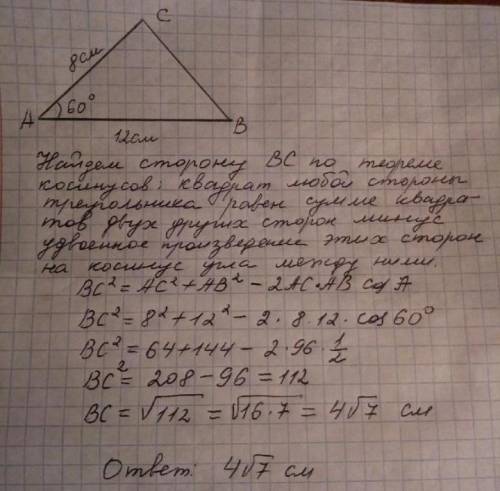 C
8см
60°
A
B
12см
Найдем сторону BC по теореме
косинусов: квадрат любой стороны
треугольника равен сумме квадра-
тов двух других сторон минус
удвоенное произведение этих сторон
на косинус угла между ними.
BC² = AC² + AB² - 2AC·AB cos A
BC² = 8² + 12² - 2 · 8 · 12 · cos 60°
BC² = 64 + 144 - 2 · 96 · 1/2
BC² = 208 - 96 = 112
BC = √112 = √16·7 = 4√7 см
Ответ: 4√7 см